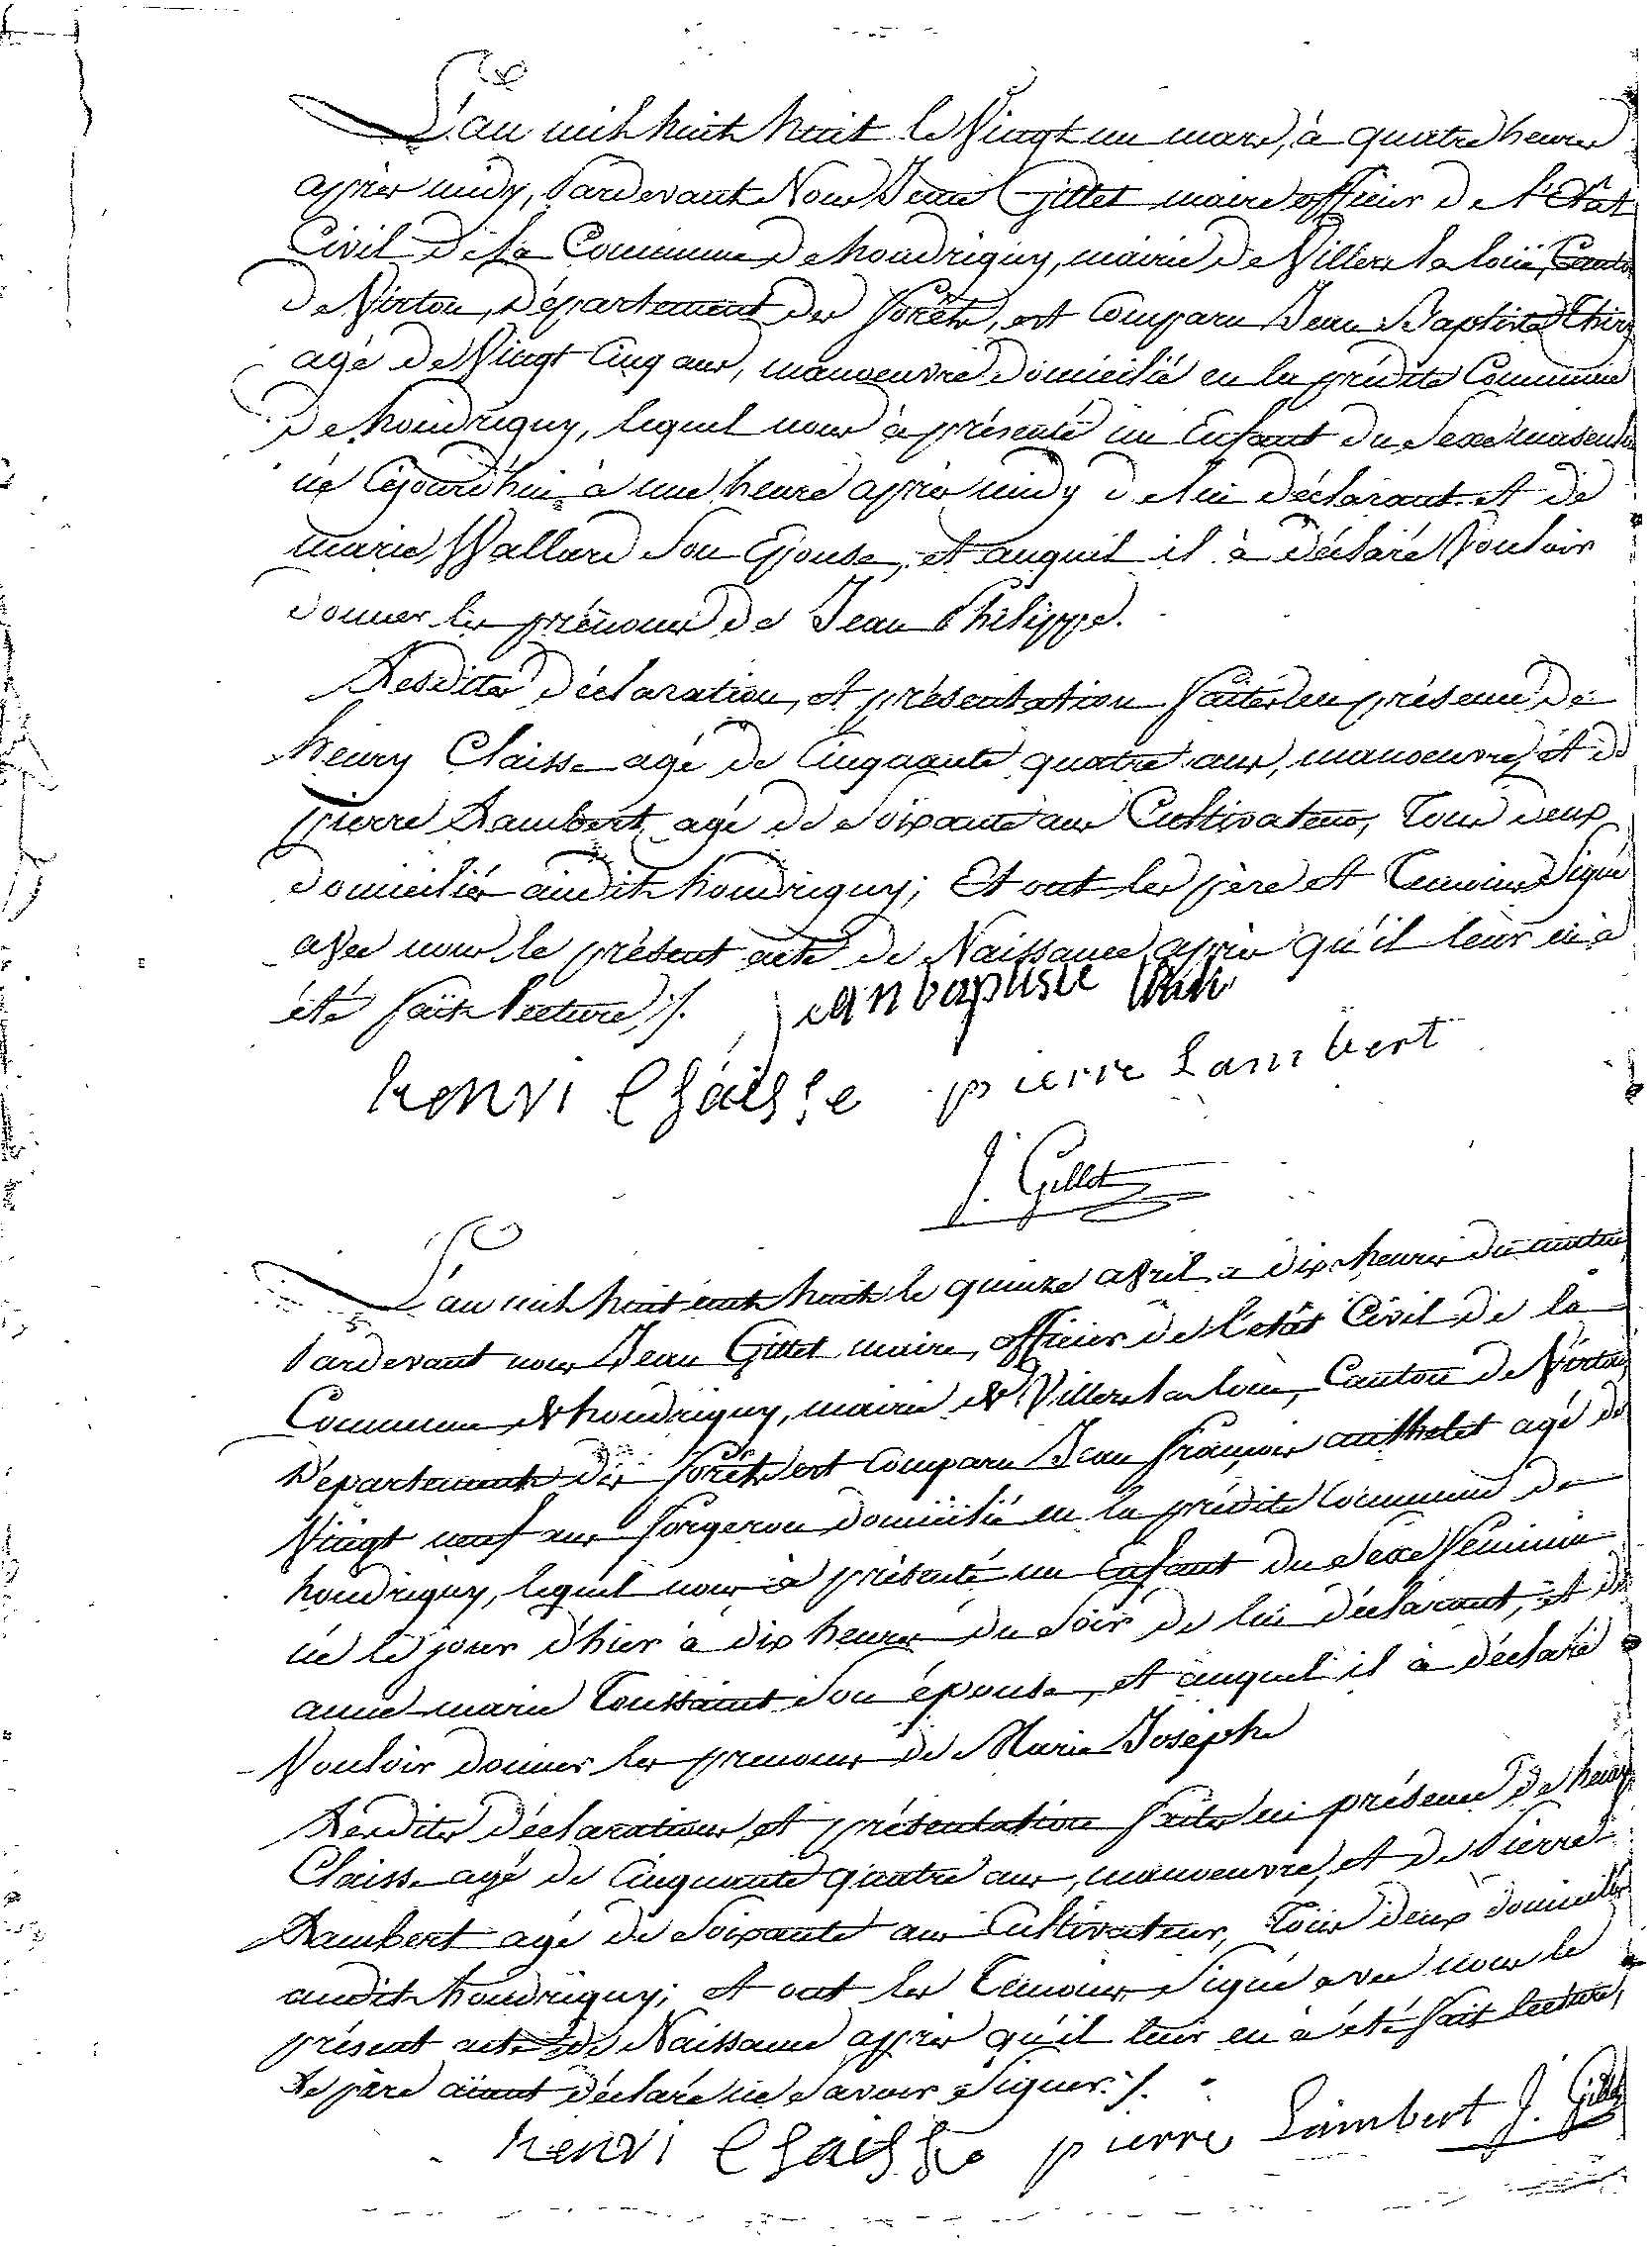 L'an mil huit huit le Vingt un mars, à quatre heures
après midy, Pardevant Nous Jean Gillet maire officier de l'Etat
Civil de la Commune de houdrigny, mairie de Villers la loüe, Canton
De Virton, Département des Forêts, est Comparu Jean Baptiste
agé de Vingt Cinq ans, manoeuvre domicilié en la prédite Commune
De houdrigny, lequel nous à présenté un Enfant du Sexe masculin
né Cejourd'hui à une heure après midy de lui déclarant et de
marie Wallard Son Epouse, et auquel il à déclaré Vouloir
donner les prénoms de Jean Philippe.
Lesdites Déclaration, et présentation faites en présence De
henry Claisse agé de Cinquante quatre ans, manoeuvre, et de
pierre Lambert agé de Soixante ans Cultivateur, Tous deux
domiciliés audit houdrigny; Et ont les père et Temoins Signé
avec nous le présent acte de Naissance après qu'il leur en à
été fait lecture ./.
jean baptiste
henri Claisse pierre Lambert
J. Gillet
L'an mil huit cent huit le quinze avril à dix heures du matin
Pardevant nous Jean Gillet maire, officier de l'etât Civil de la
Commune de houdrigny, mairie de Villers la loüe, Canton de Virton
Département des Forêts est Comparu Jean françois authelet agé de
Vingt neuf ans forgeron domicilié en la prédite Commune de
houdrigny, lequel nous à présenté un Enfant du Sexe Féminin
né le jour d'hier à dix heures du Soir de lui déclarant, et de
anne marie Toussaint Son épouse, et auquel il à déclaré
Vouloir donner les prenoms de Marie Josephe
Lesdites Déclaration, et présentation faites en présence de henry
Claisse agé de Cinquante quatre ans, manoeuvre, et de Pierre
Lambert agé de Soixante ans Cultivateur, Tous deux domiciliés
audit houdrigny; et ont les Temoins Signé avec nous le
présent acte de Naissance après qu'il leur en à été fait lecture,
Le père aïant déclaré ne Savoir Signer ./.
henri Claisse pierre Lambert J. Gillet